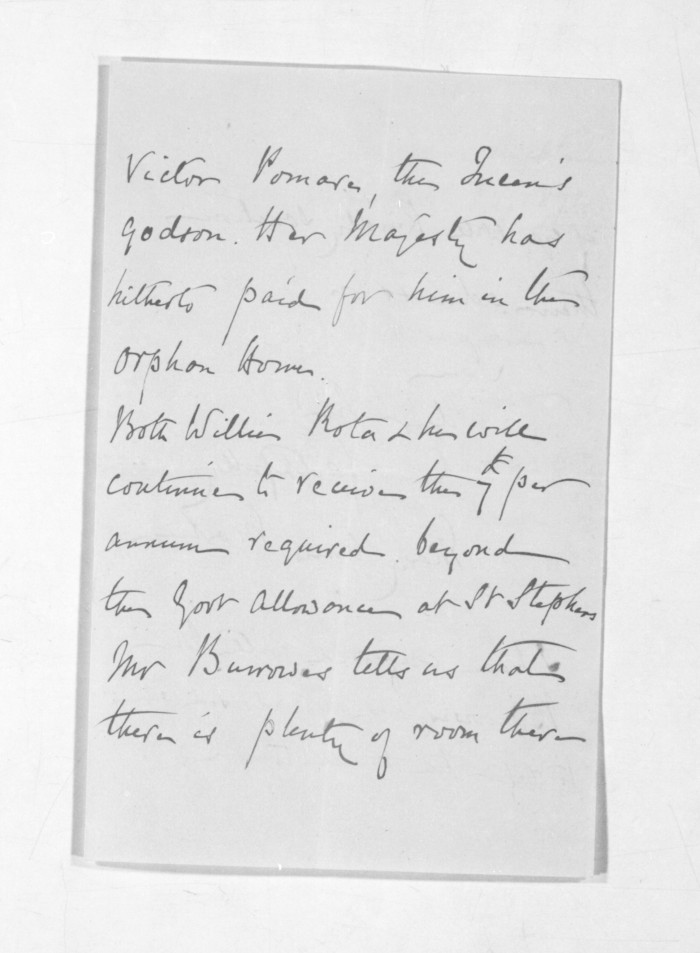 Victor Pomare, the Queen's
godson. Her Majesty has
hitherto paid for him in the
Orphan Home.
Both Willie Rota & he will
continue to receive the 7 per
annum required beyond
the Govt Allowance at St Stephens
Mr Burrows tells us that
there is plenty of room there